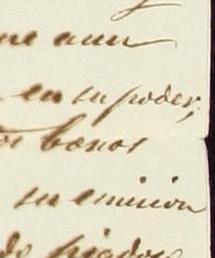 me aun
en su poder,
los bonos
su emision
de piados